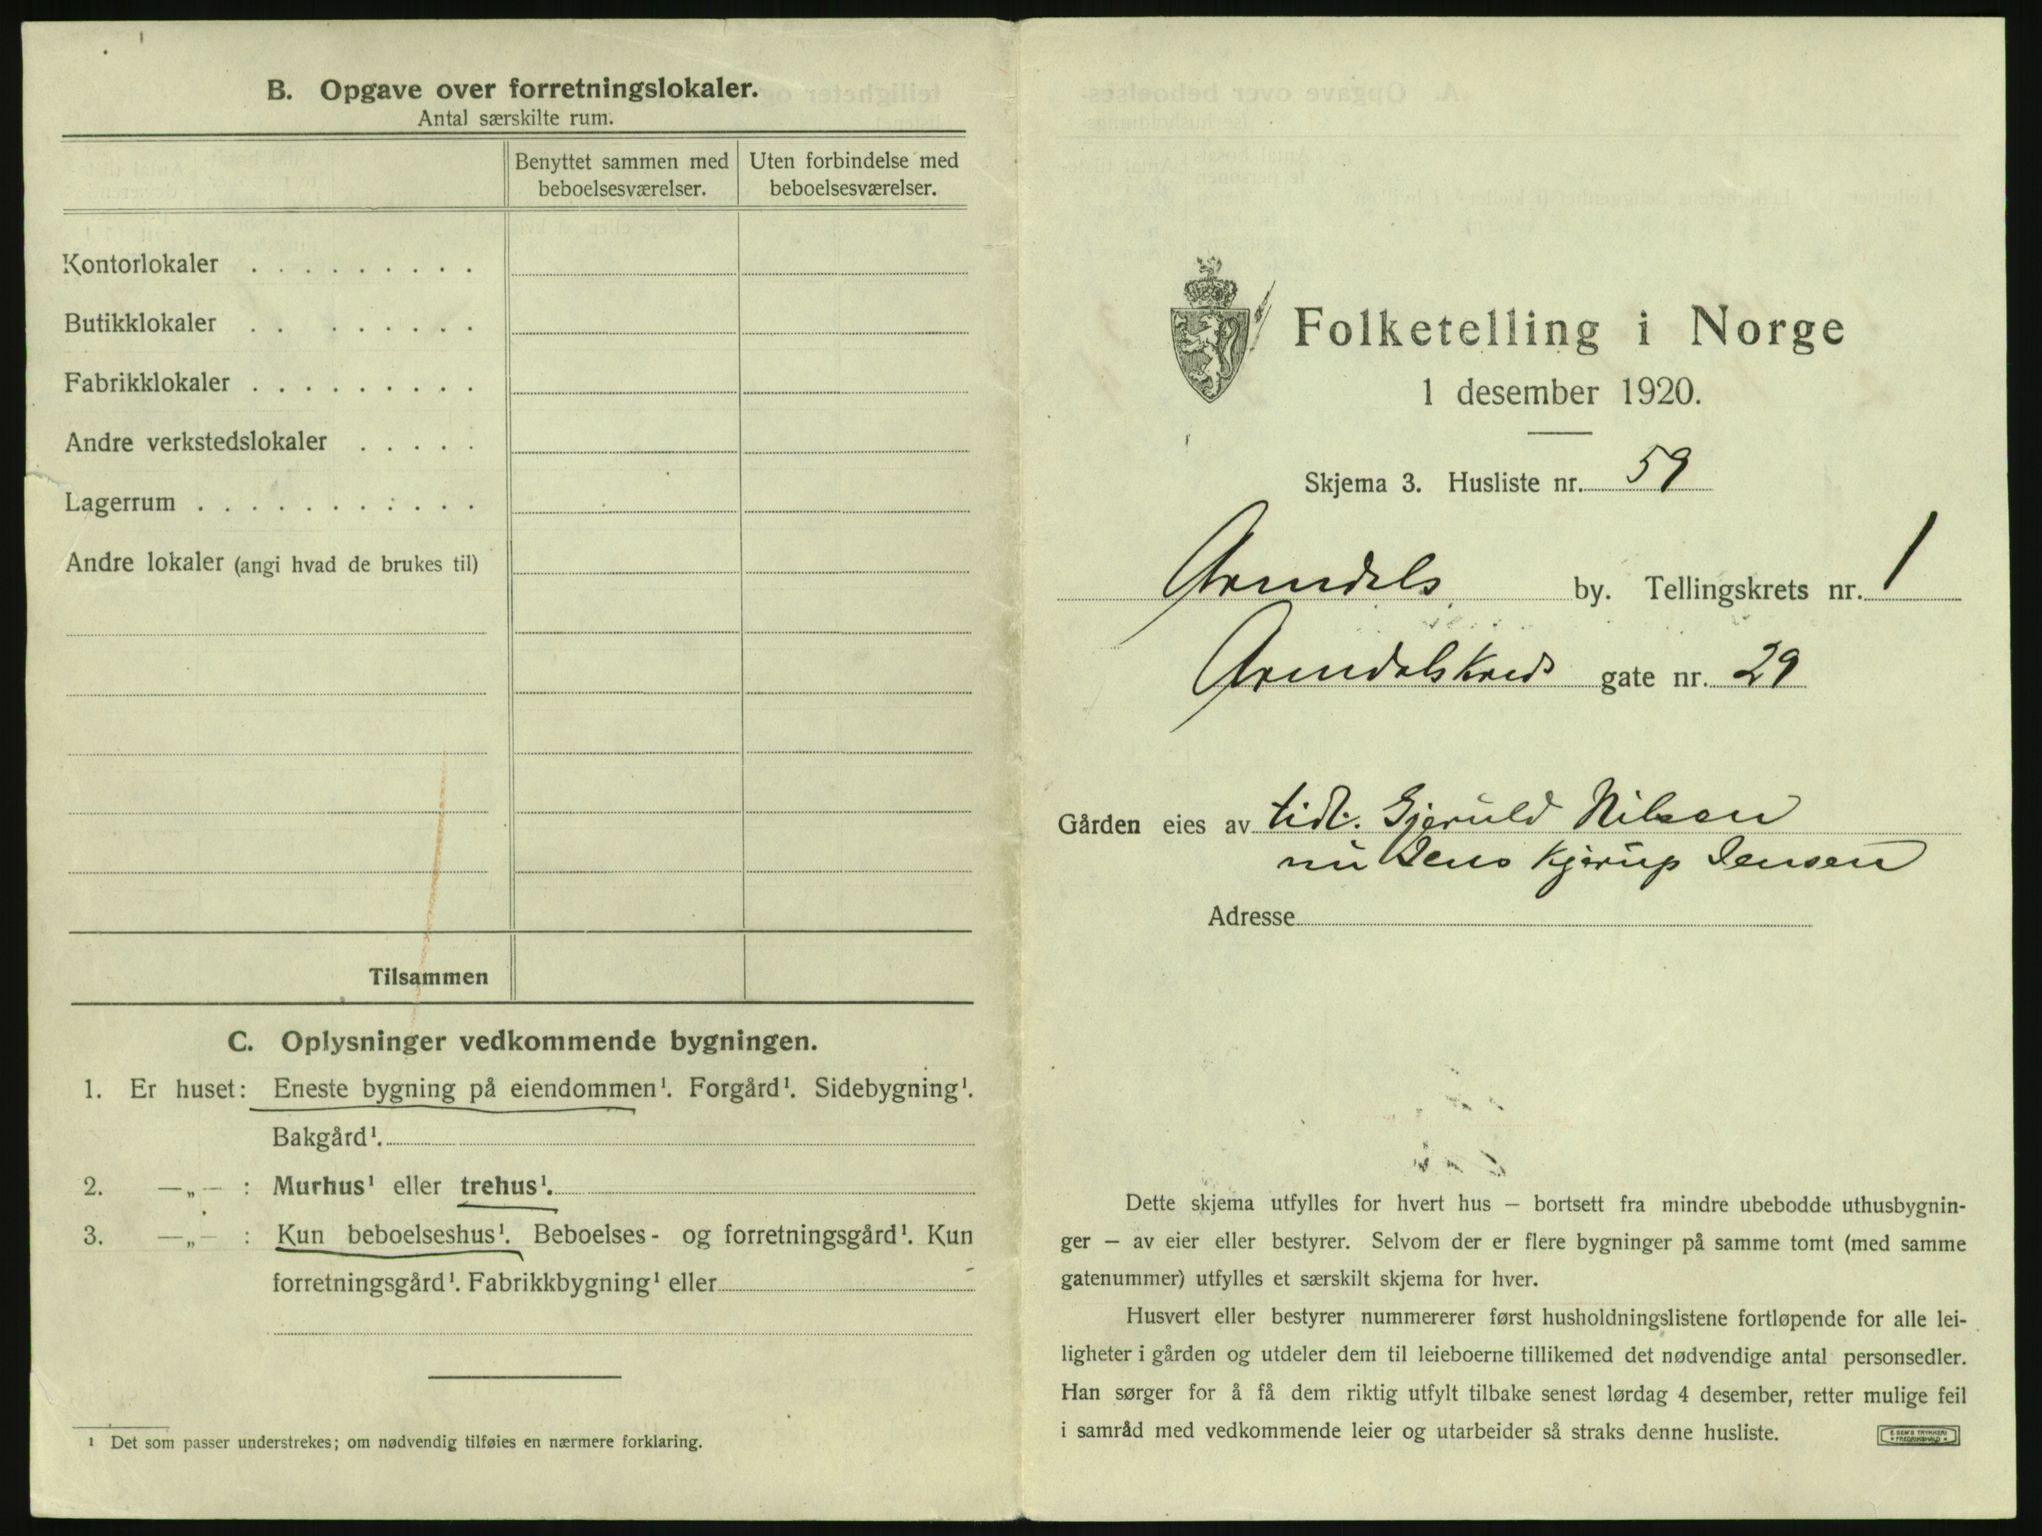 B. Opgave over forretningslokaler.
Antal særskilte rum.
Benyttet sammen med beboelsesværelser.
Uten forbindelse med beboelsesværelser.
Kontorlokaler . . . . . . . . .
Butikklokaler . . . . . . . .
Fabrikklokaler . . . . . . . . .
Andre verkstedslokaler . . . . .
Lagerrum . . . . . . . . . . .
Andre lokaler (angi hvad de brukes til)
Tilsammen
C. Oplysninger vedkommende bygningen.
1. Er huset: Eneste bygning på eiendommen¹. Forgård¹. Sidebygning¹.
Bakgård¹.
2. —„— : Murhus¹ eller trehus¹.
3. —„— : Kun beboelseshus¹. Beboelses- og forretningsgård¹. Kun
forretningsgård¹. Fabrikkbygning¹ eller
¹ Det som passer understrekes; om nødvendig tilføies en nærmere forklaring.
Folketelling i Norge
1 desember 1920.
Skjema 3. Husliste nr. 59
Arendals by. Tellingskrets nr. 1
Arendalskreds gate nr. 29
Gården eies av tidl. Gjeruld Nilsen
nu Jens Kjørup Jensen
Adresse
Dette skjema utfylles for hvert hus — bortsett fra mindre ubebodde uthusbygnin-
ger — av eier eller bestyrer. Selvom der er flere bygninger på samme tomt (med samme
gatenummer) utfylles et særskilt skjema for hver.
Husvert eller bestyrer nummererer først husholdningslistene fortløpende for alle lei-
ligheter i gården og utdeler dem til leieboerne tillikemed det nødvendige antal personsedler.
Han sørger for å få dem riktig utfylt tilbake senest lørdag 4 desember, retter mulige feil
i samråd med vedkommende leier og utarbeider så straks denne husliste.
E. SEM'S TRYKKERI
FREDRIKSHALD